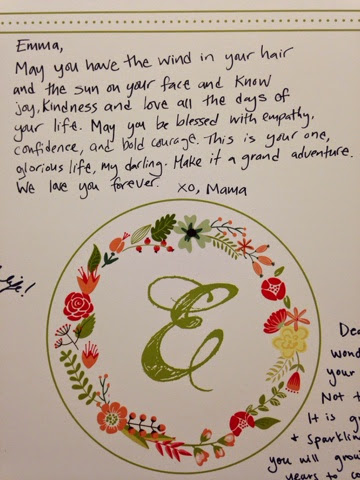 Emma,
May you have the wind in your hair
and the sun on your face and know
joy, kindness and love all the days of
your life. May you be blessed with empathy,
confidence, and bold courage. This is your one,
glorious life, my darling. Make it a grand adventure.
We love you forever. xo, Mama
E
life!
wond
your
Not t
It is
+ sparklin
you will
years to